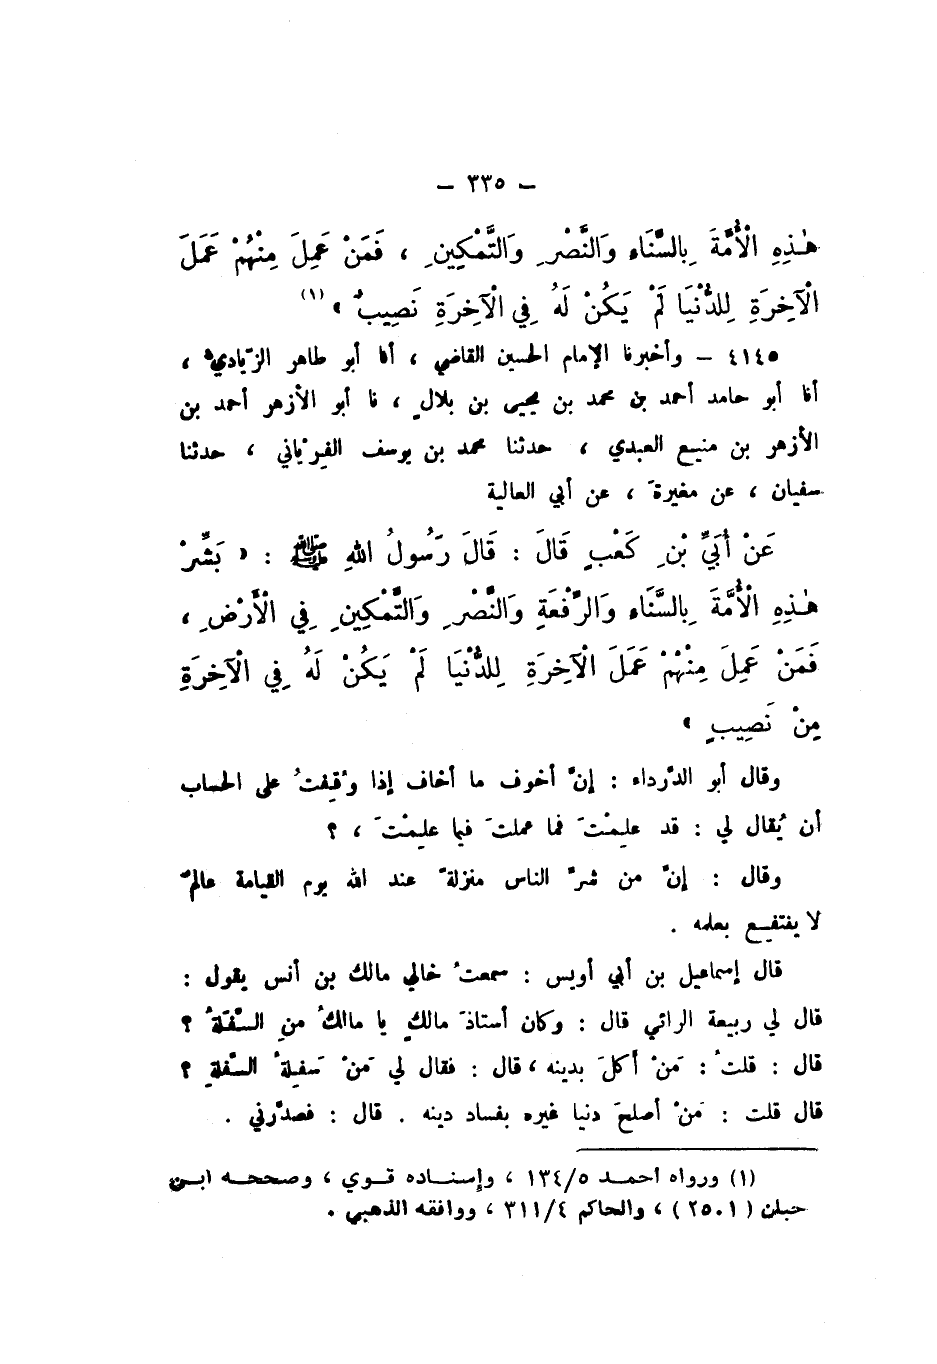 – ٣٣٥ –
هٰذِهِ الْأُمَّةَ بِالسَّنَاءِ وَالنَّصْرِ وَالتَّمْكِينِ ، فَمَنْ عَمِلَ مِنْهُمْ عَمَلَ
الْآخِرَةِ لِلدُّنْيَا لَمْ يَكُنْ لَهُ فِي الْآخِرَةِ نَصِيبٌ » (١)
٤١٤٥ – وأخبرنا الإمام الحسين القاضي ، أنا أبو طاهر الزّيادي ،
أنا أبو حامد أحمد بن محمد بن يحيى بن بلالٍ ، نا أبو الأزهر أحمد بن
الأزهر بن منيع العبدي ، حدثنا محمد بن يوسف الفِرْياني ، حدثنا
سفيان ، عن مغيرةَ ، عن أبي العالية
عَنْ أُبَيِّ بْنِ كَعْبٍ قَالَ : قَالَ رَسُولُ اللهِ ﷺ : « بَشِّرْ
هٰذِهِ الْأُمَّةَ بِالسَّنَاءِ وَالرِّفْعَةِ وَالنَّصْرِ وَالتَّمْكِينِ فِي الْأَرْضِ ،
فَمَنْ عَمِلَ مِنْهُمْ عَمَلَ الْآخِرَةِ لِلدُّنْيَا لَمْ يَكُنْ لَهُ فِي الْآخِرَةِ
مِنْ نَصِيبٍ »
وقال أبو الدّرداء : إنّ أخوف ما أخاف إذا وُقِفتُ على الحساب
أن يُقال لي : قد علِمْتَ فما عملتَ فيما علِمْتَ ، ؟
وقال : إنّ من شرّ الناس منزلةً عند الله يوم القيامة عالمٌ
لا ينتفع بعلمه .
قال إسماعيل بن أبي أويس : سمعتُ خالي مالك بن أنس يقول :
قال لي ربيعة الرائي قال : وكان أستاذَ مالكٍ يا مالكُ منِ السِّفْلَةُ ؟
قال : قلتُ : مَنْ أَكلَ بدينه ، قال : فقال لي مَنْ سَفِلةُ السِّفلةِ ؟
قال قلت : مَنْ أصلحَ دنيا غيره بفساد دينه . قال : فصدّرني .
(١) ورواه أحمد ١٣٤/٥ ، وإسناده قوي ، وصححه ابن
حبان (٢٥٠١) ، والحاكم ٣١١/٤ ، ووافقه الذهبي .